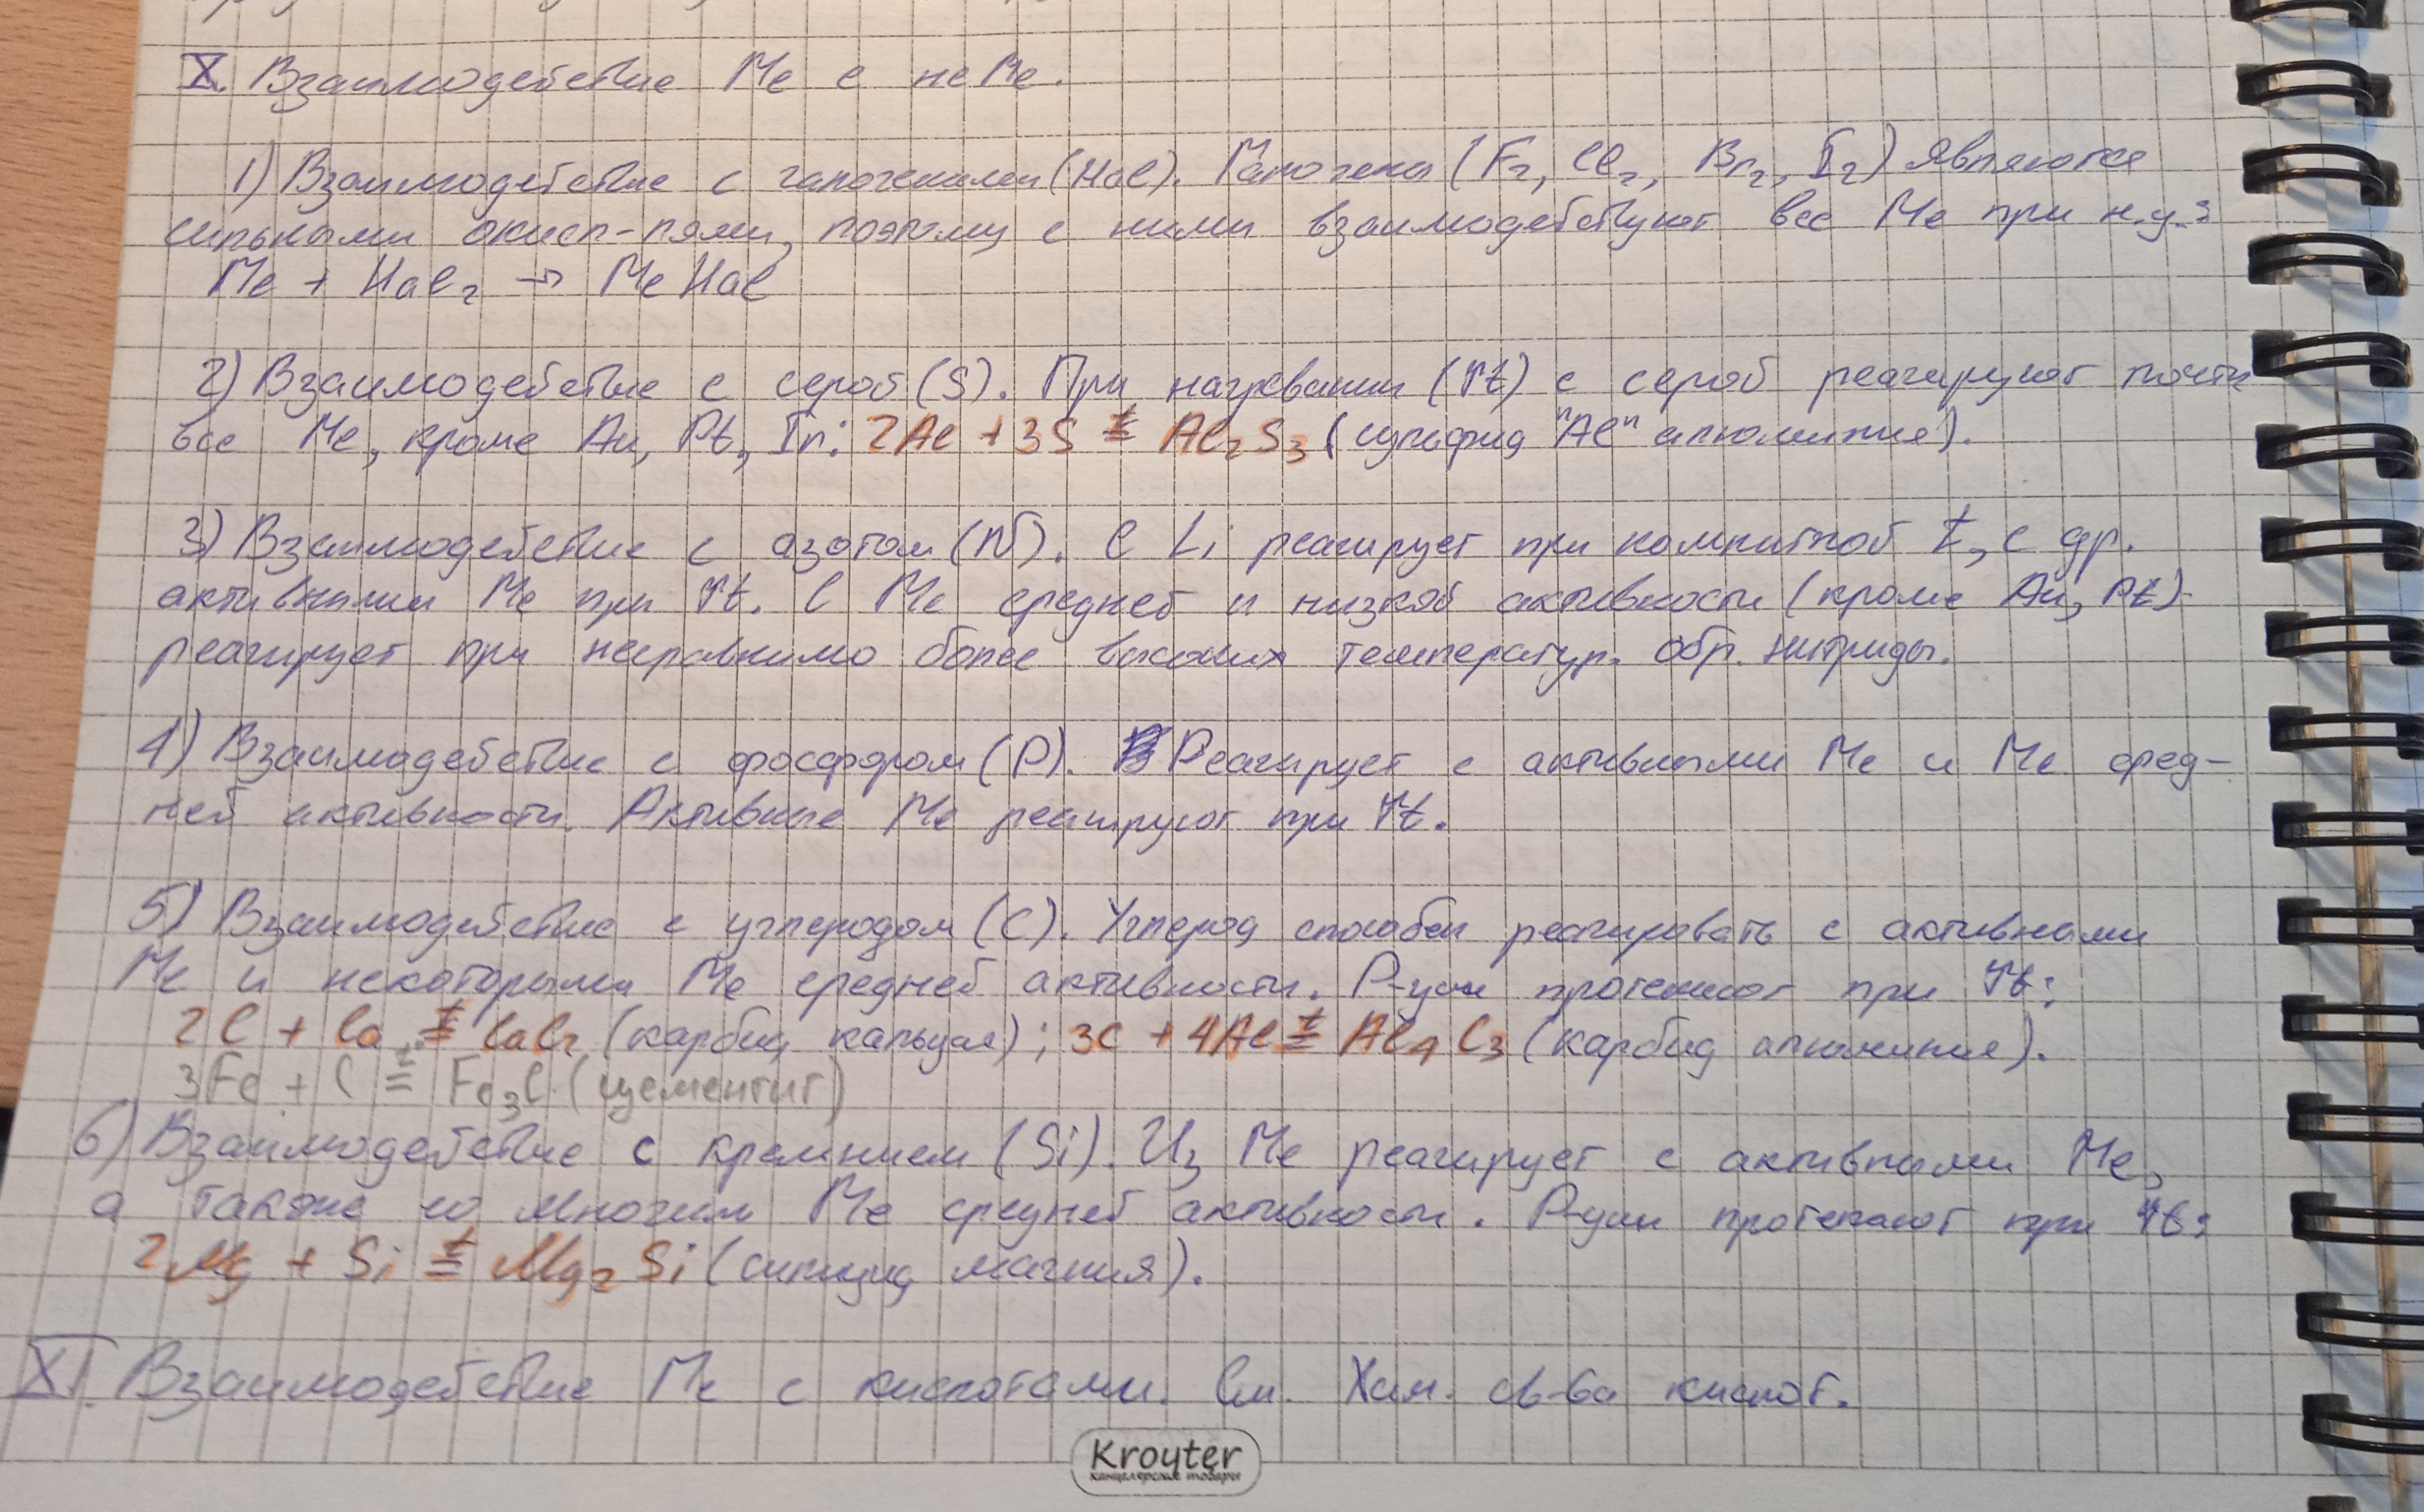 X. Взаимодействие Ме с неМе.
1) Взаимодействие с галогенами (Hal). Галогены (F₂, Cl₂, Br₂, I₂) являются
сильными окисл-лями, поэтому с ними взаимодействуют все Ме при н.у.:
Me + Hal₂ → MeHal
2) Взаимодействие с серой (S). При нагревании (↑t) с серой реагируют почти
все Ме, кроме Au, Pt, Ir: 2Al + 3S =t Al₂S₃ (сульфид "Al" алюминия).
3) Взаимодействие с азотом (N). С Li реагирует при комнатной t, с др.
активными Ме при ↑t. С Ме средней и низкой активности (кроме Au, Pt)
реагирует при несравнимо более высоких температур. обр. нитриды.
4) Взаимодействие с фосфором (P). Реагирует с активными Ме и Ме сред-
ней активности. Активные Ме реагируют при ↑t.
5) Взаимодействие с углеродом (C). Углерод способен реагировать с активными
Ме и некоторыми Ме средней активности. Р-ции протекают при ↑t:
2C + Ca =t CaC₂ (карбид кальция); 3C + 4Al =t Al₄C₃ (карбид алюминия).
3Fe + C =t Fe₃C (цементит)
6) Взаимодействие с кремнием (Si). Из Ме реагирует с активными Ме,
а также со многим Ме средней активности. Р-ции протекают при ↑t:
2Mg + Si =t Mg₂Si (силицид магния).
XI. Взаимодействие Ме с кислотами. См. Хим. св-ва кислот.
Kroyter
канцелярские товары